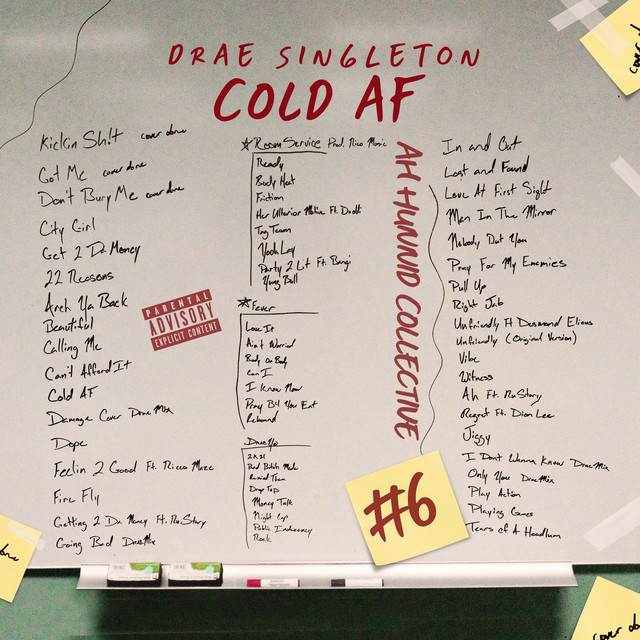 DRAE SINGLETON
COLD AF
Kickin Sh!t cover done
Got Me cover done
Don't Bury Me cover done
City Girl
Get 2 Da Money
22 Reasons
Arch Ya Back
Beautiful
Calling Me
Can't Afford It
Cold AF
Damage Cover Drae Mix
Dope
Feelin 2 Good Ft. Ricco Maze
Fire Fly
Getting 2 Da Money Ft. NuStory
Going Bad DraeMix
PARENTAL
ADVISORY
EXPLICIT CONTENT
Room Service Prod. Rico Music
Ready
Body Heat
Friction
Her Ulterior Motive Ft.
Tag Team
Yeah Lay
Party 2 Lit Ft.
Yung Ball
Fever
Love It
Ain't Worried
Body On Body
Can I
I Know Now
Pray B4 You Eat
Rebound
2K21
Bad Bitch Mode
Remind Them
Drop Top
Money Talk
Night Cap
Public Indecency
Rock
AH HUNNID COLLECTIVE
In and Out
Lost and Found
Love At First Sight
Man In The Mirror
Nobody But You
Pray For My Enemies
Pull Up
Right Jab
Unfriendly Ft Desmond Elious
Unfriendly (Original Version)
Vibe
Witness
Ah Ft. NuStory
Regret Ft. Dion Lee
Jiggy
I Don't Wanna Know DraeMix
Only You DraeMix
Play Action
Playing Games
Tears of A Hoodlum
#6
cover do